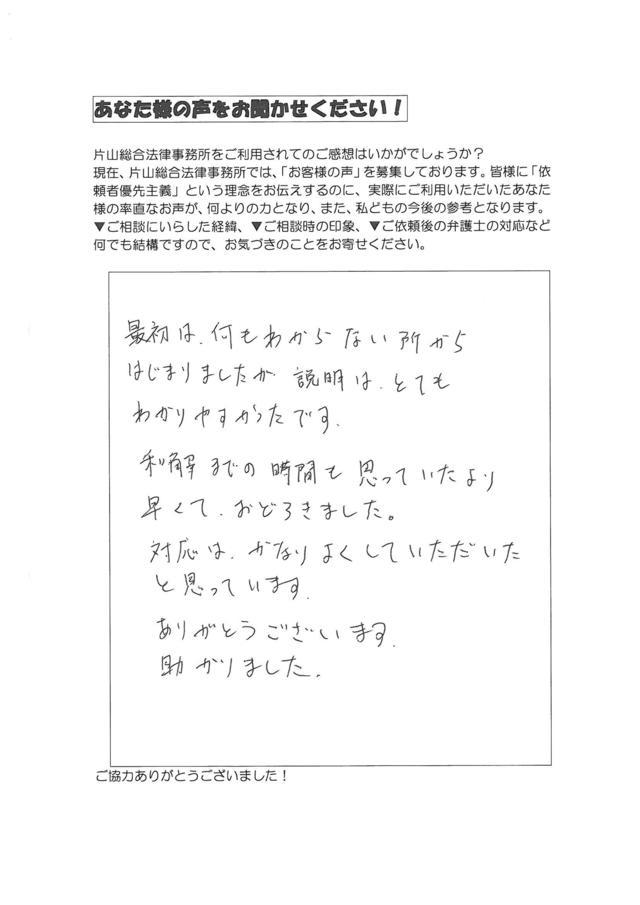 あなた様の声をお聞かせください！
片山総合法律事務所をご利用されてのご感想はいかがでしょうか？
現在、片山総合法律事務所では、「お客様の声」を募集しております。皆様に「依
頼者優先主義」という理念をお伝えするのに、実際にご利用いただいたあなた
様の率直なお声が、何よりの力となり、また、私どもの今後の参考となります。
▼ご相談にいらした経緯、▼ご相談時の印象、▼ご依頼後の弁護士の対応など
何でも結構ですので、お気づきのことをお寄せください。
最初は、何もわからない所から
はじまりましたが 説明は、とても
わかりやすかったです.
和解までの時間も思っていたより
早くて、おどろきました。
対応は、かなりよくしていただいた
と思っています.
ありがとうございます.
助かりました.
ご協力ありがとうございました！